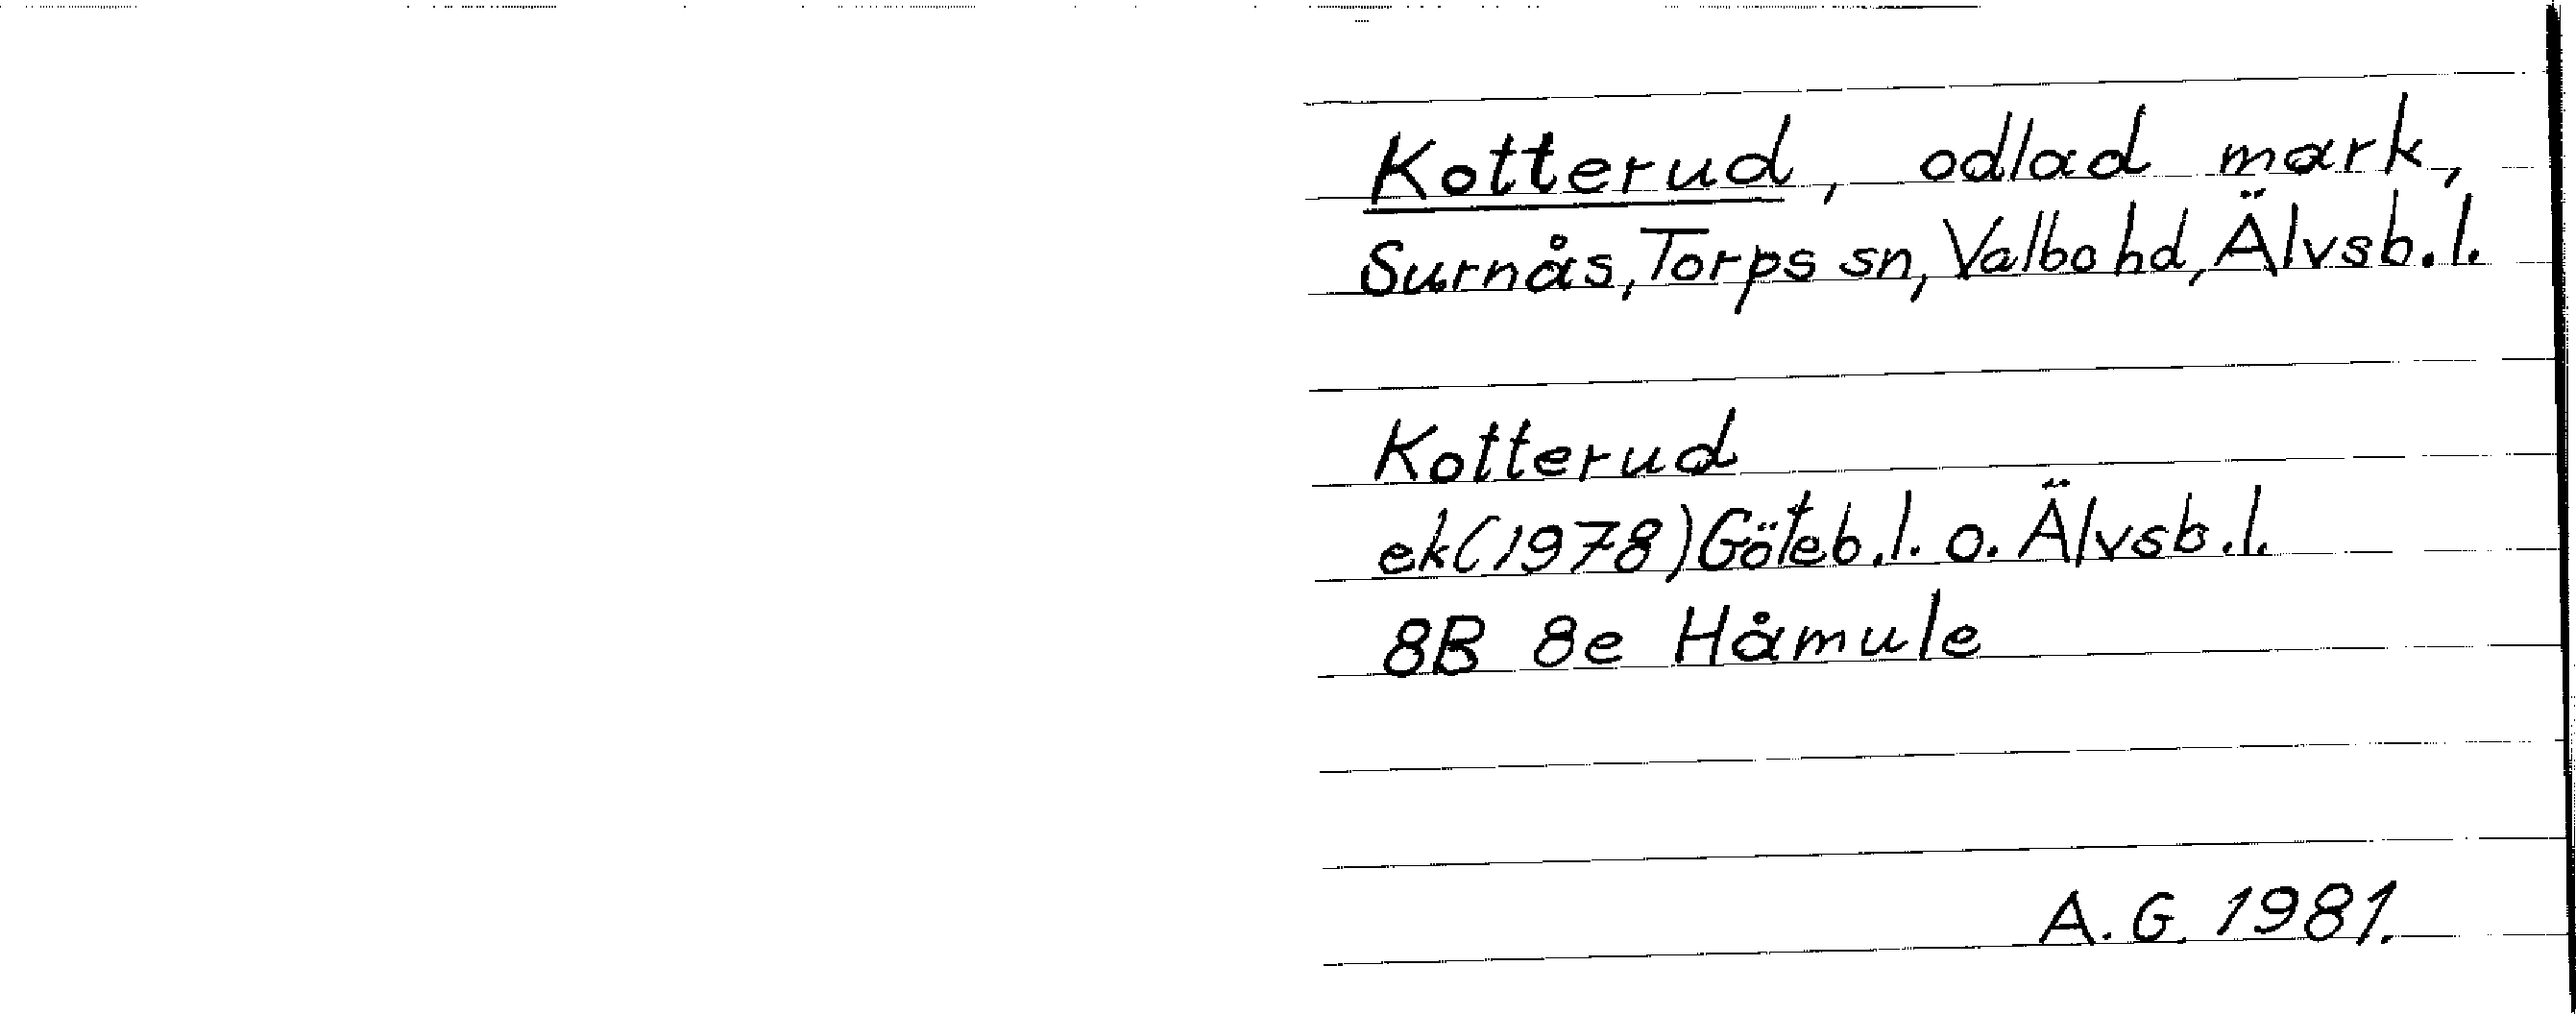 Kotterud, odlad mark,
Surnås, Torps sn, Valbo hd, Älvsb.l.
Kotterud
ek(1978) Göteb.l. o. Älvsb.l.
8B 8e Håmule
A.G. 1981.